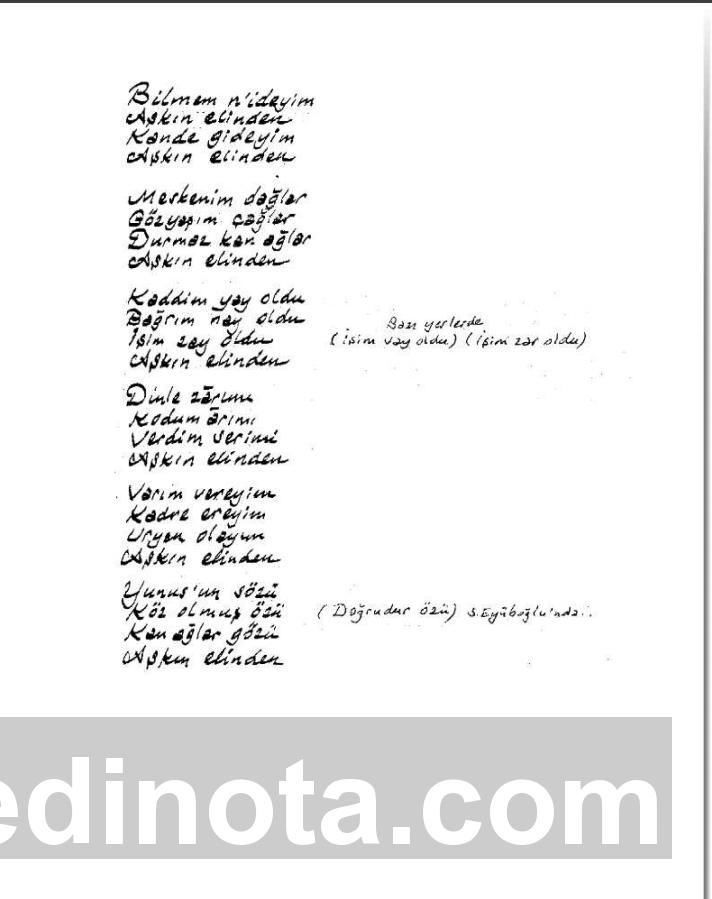 Bilmem n'ideyim
Aşkın elinden
Kande gideyim
Aşkın elinden
Meskenim dağlar
Gözyaşım çağlar
Durmaz kan ağlar
Aşkın elinden
Kaddim yay oldu
Bağrım nay oldu
İşim zay oldu
Aşkın elinden
Bazı yerlerde
(İşim vay oldu) (İşim zar oldu)
Dinle zârımı
Kodum ârımı
Verdim serimi
Aşkın elinden
Varım vereyim
Kadre ereyim
Üryan olayım
Aşkın elinden
Yunus'un sözü
Köz olmuş özü
(Doğrudur özü) S.Eyüboğlu'nda..
Kan ağlar gözü
Aşkın elinden
edinota.com